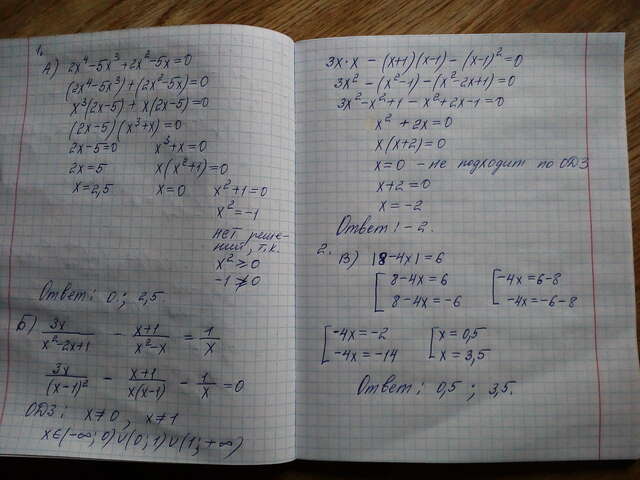 1.
А) 2x⁴-5x³+2x²-5x=0
(2x⁴-5x³)+(2x²-5x)=0
x³(2x-5)+x(2x-5)=0
(2x-5)(x³+x)=0
2x-5=0 x³+x=0
2x=5 x(x²+1)=0
x=2,5 x=0 x²+1=0
x²=-1
нет реше-
ний, т.к.
x²≥0
-1≱0
Ответ: 0; 2,5
Б) 3x/(x²-2x+1) - (x+1)/(x²-x) = 1/x
3x/(x-1)² - (x+1)/(x(x-1)) - 1/x = 0
ОДЗ: x≠0, x≠1
x∈(-∞;0)∪(0;1)∪(1;+∞)
3x·x-(x+1)(x-1)-(x-1)²=0
3x²-(x²-1)-(x²-2x+1)=0
3x²-x²+1-x²+2x-1=0
x²+2x=0
x(x+2)=0
x=0 - не подходит по ОДЗ
x+2=0
x=-2
Ответ: -2.
2.
В) |8-4x|=6
[8-4x=6 [-4x=6-8
8-4x=-6 -4x=-6-8
[-4x=-2 [x=0,5
-4x=-14 x=3,5
Ответ: 0,5; 3,5.